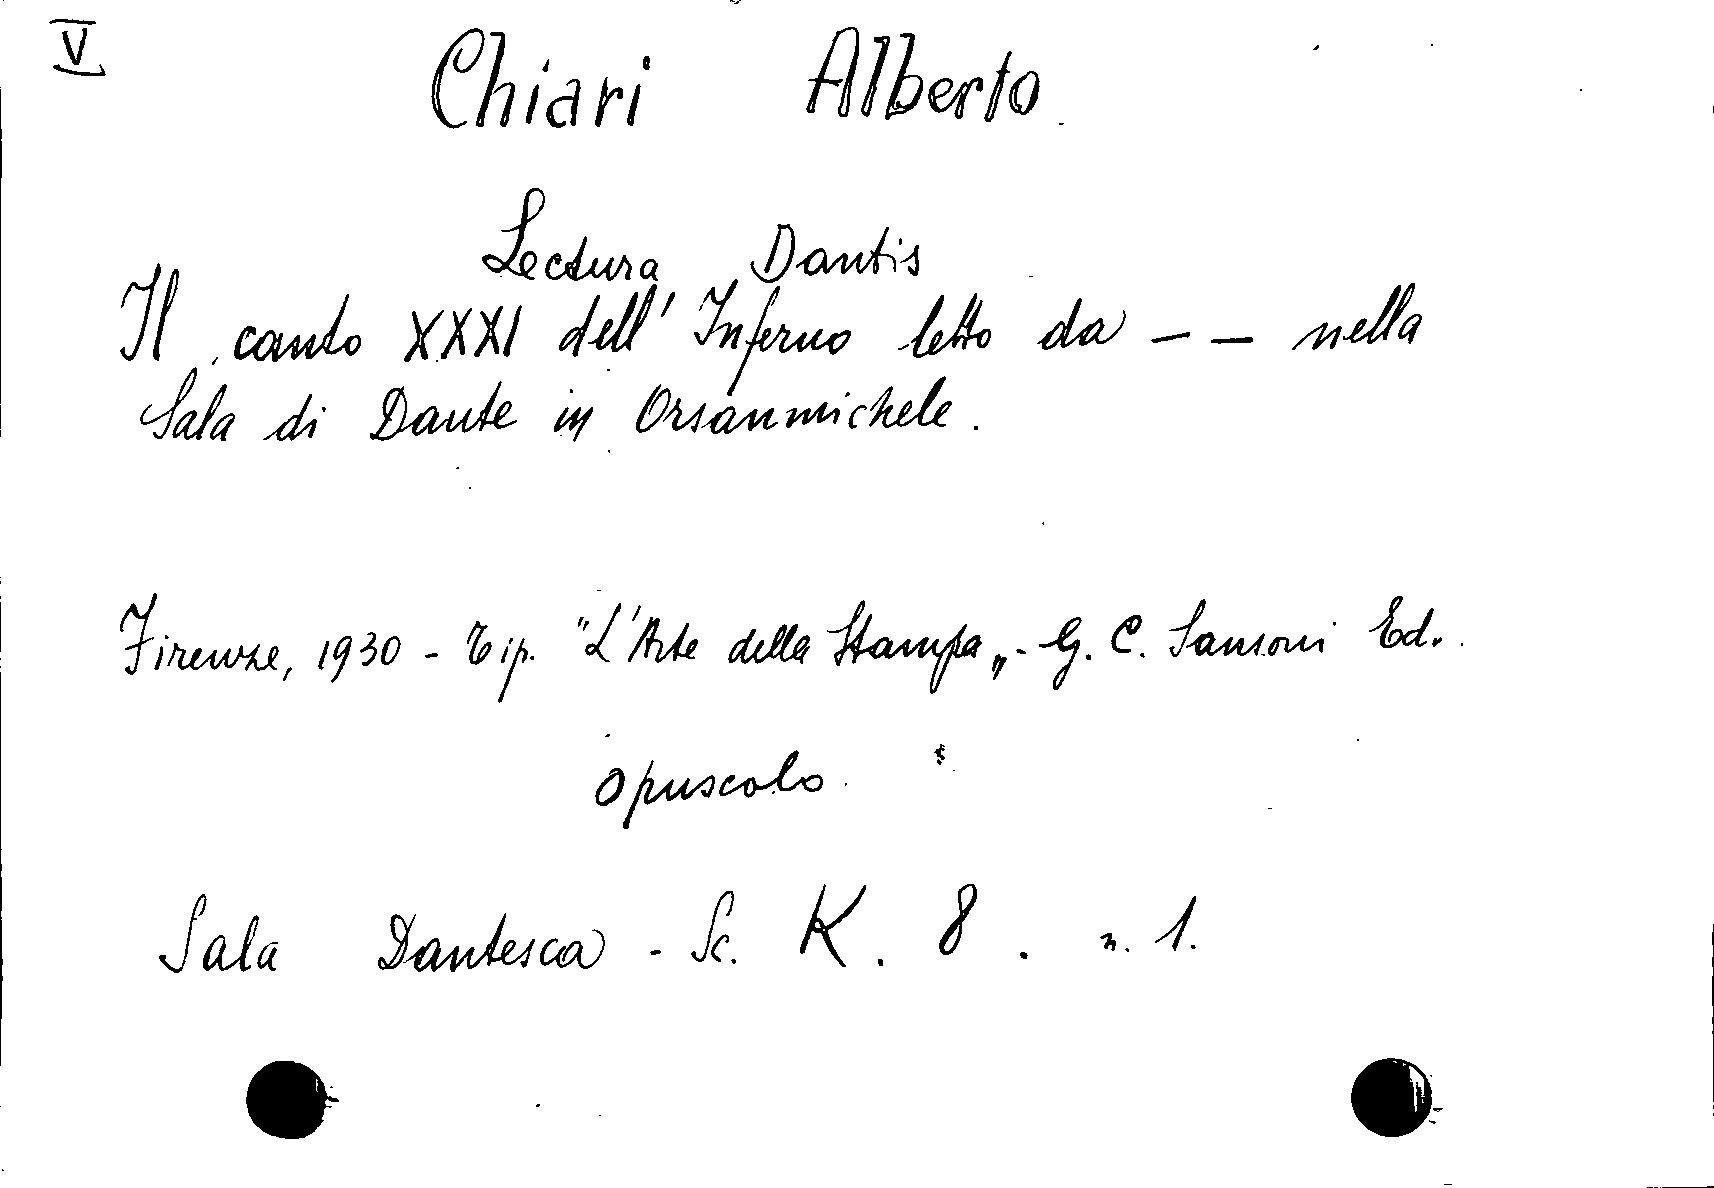 V
Chiari Alberto
Lectura Dantis
Il canto XXXI dell' Inferno letto da — — nella
Sala di Dante in Orsanmichele.
Firenze, 1930 - Tip. "L'Arte della Stampa„ - G. C. Sansoni Ed.
opuscolo
Sala Dantesca - Sc. K. 8. n. 1.